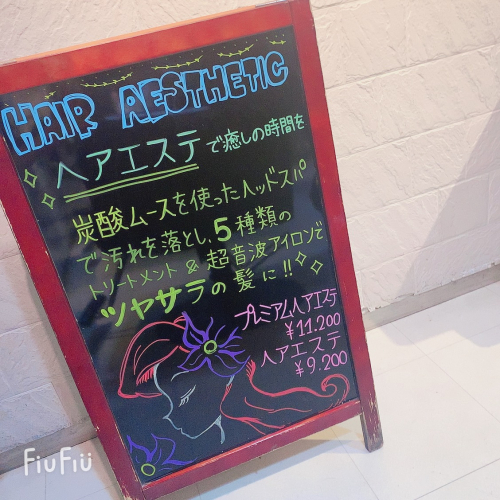 HAIR AESTHETIC
ヘアエステで癒しの時間を
炭酸ムースを使ったヘッドスパ
で汚れを落とし、5種類の
トリートメント & 超音波アイロンで
ツヤサラの髪に!!
プレミアムヘアエステ
¥11.200
ヘアエステ
¥9.200
FiuFiü